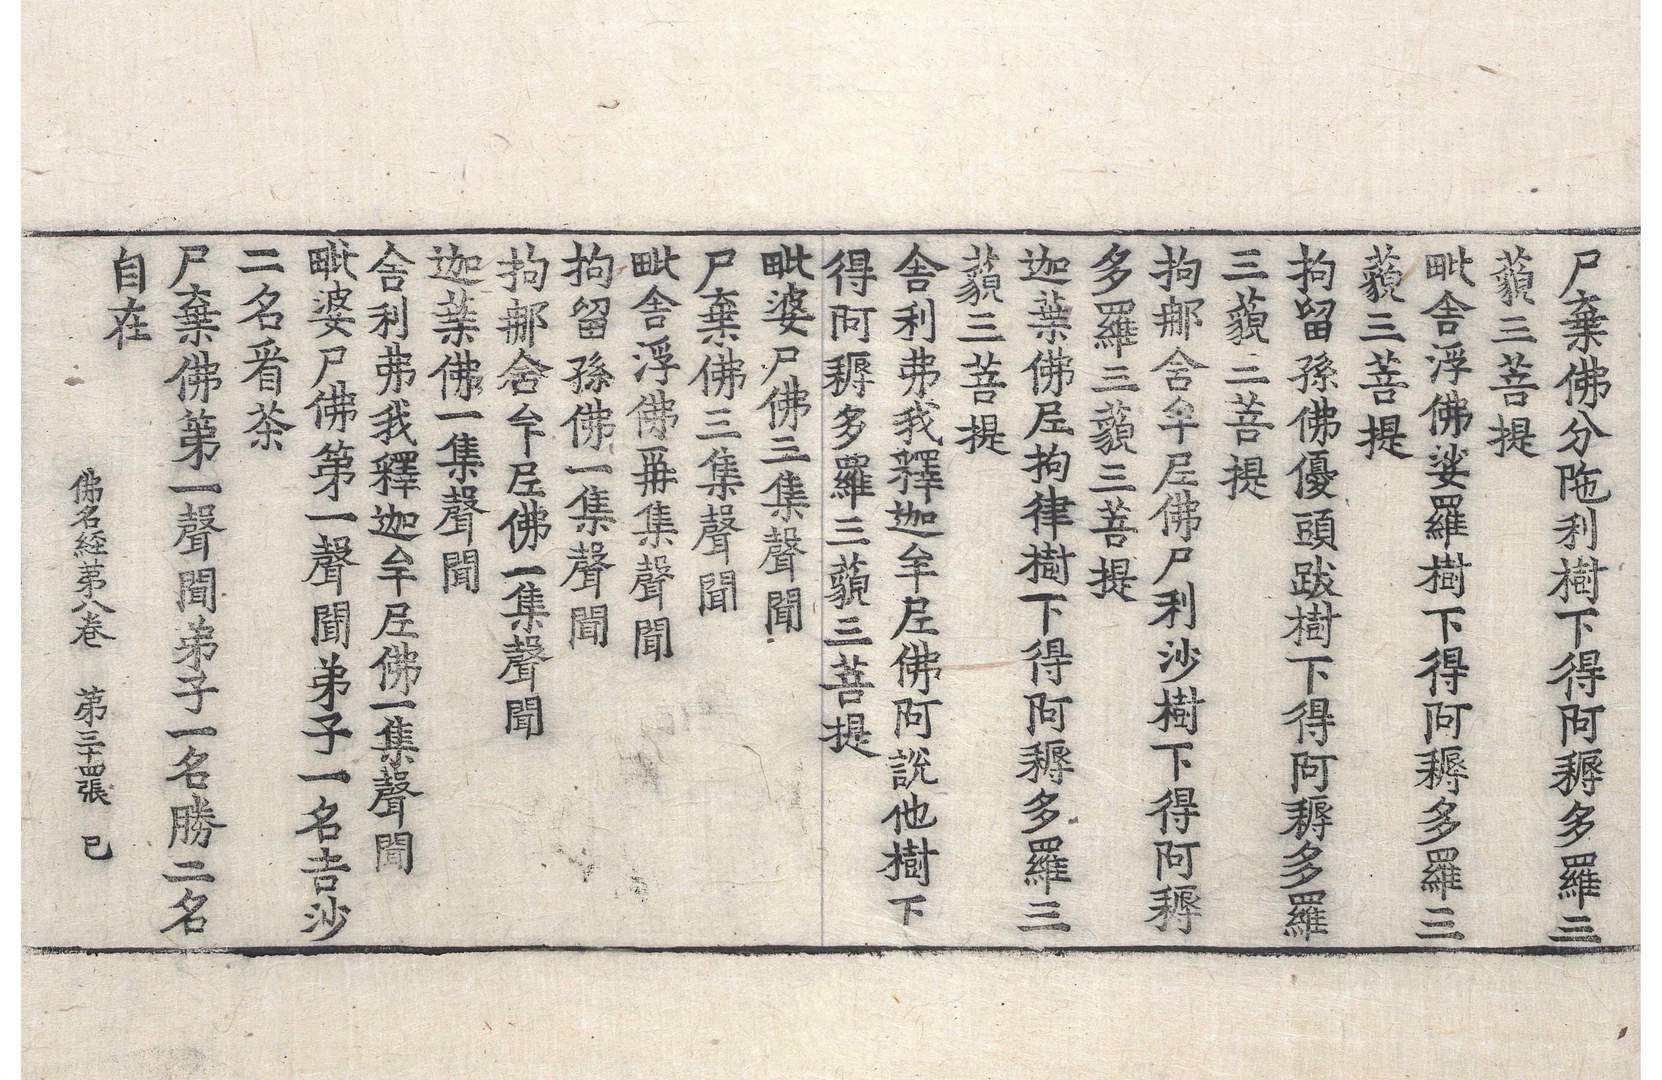 尸棄佛分陁利樹下得阿耨多羅三
藐三菩提
毗舍浮佛娑羅樹下得阿耨多羅三
藐三菩提
拘留孫佛優頭跋樹下得阿耨多羅
三藐三菩提
拘那含牟尼佛尸利沙樹下得阿耨
多羅三藐三菩提
迦葉佛尼拘律樹下得阿耨多羅三
藐三菩提
舍利弗我釋迦牟尼佛阿說他樹下
得阿耨多羅三藐三菩提
毗婆尸佛三集聲聞
尸棄佛三集聲聞
毗舍浮佛再集聲聞
拘留孫佛一集聲聞
拘那含牟尼佛一集聲聞
迦葉佛一集聲聞
舍利弗我釋迦牟尼佛一集聲聞
毗婆尸佛第一聲聞弟子一名吉沙
二名看茶
尸棄佛第一聲聞弟子一名勝二名
自在
佛名經第八卷 第三十四張 已